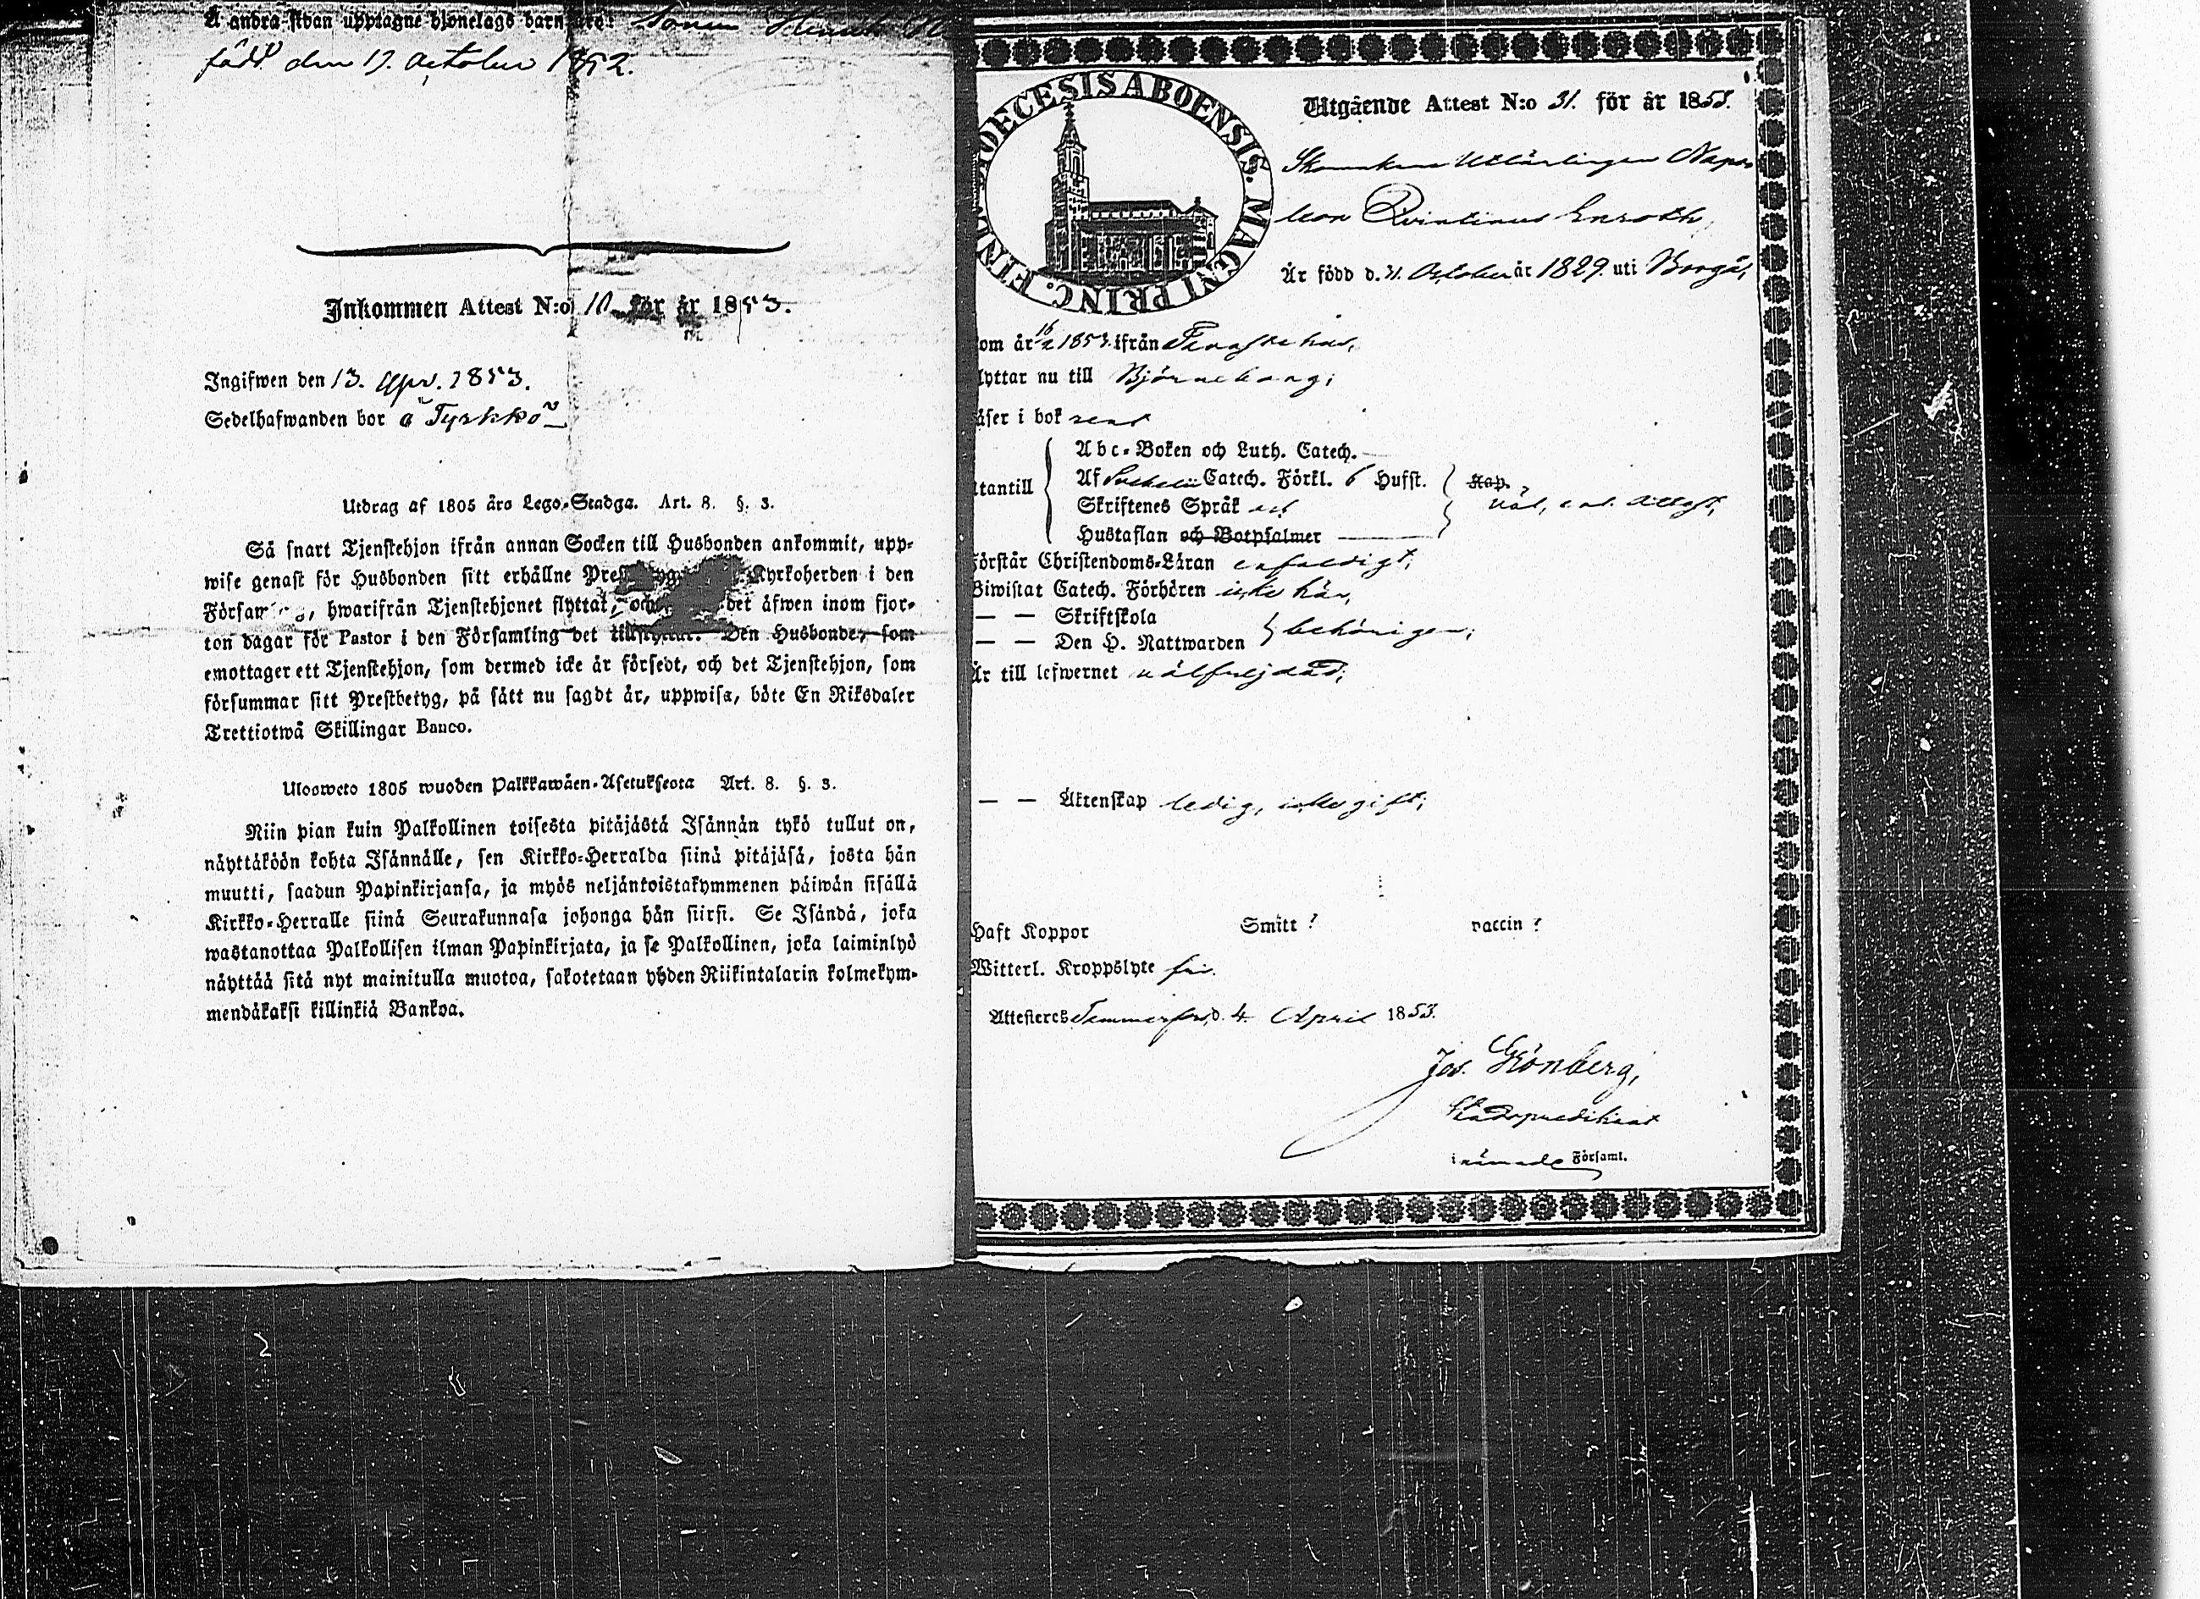 Å andra sidan upptagne hjonelags barn äro: Sonen Henrik
född den 19. October 1852.
Inkommen Attest N:o 10 för år 1853.
Ingifwen den 13. Apr. 1853.
Sedelhafwanden bor å Tyrkkö
Utdrag af 1805 års Lego-Stadga. Art. 8. §. 3.
Så snart Tjenstehjon ifrån annan Socken till Husbonden ankommit, upp-
wise genast för Husbonden sitt erhållne Kyrkoherden i den
hwarifrån Tjenstehjonet flyttat, och det äfwen inom fjor-
ton dagar för Pastor i den Församling det tillflyttat. Den Husbonde, som
emottager ett Tjenstehjon, som dermed icke är försedt, och det Tjenstehjon, som
försummar sitt Prestbetyg, på sätt nu sagdt är, uppwisa, böte En Riksdaler
Trettiotwå Skillingar Banco.
Ulosweto 1805 wuoden Palkkawäen-Asetuksesta Art. 8. §. 3.
Niin pian kuin Palkollinen toisesta pitäjästä Isännän tykö tullut on,
näyttäköön kohta Isännälle, sen Kirkko-Herralda siinä pitäjäsä, josta hän
muutti, saadun Papinkirjansa, ja myös neljäntoistakymmenen päiwän sisällä
Kirkko-Herralle siinä Seurakunnasa johonga hän siirsi. Se Isändä, joka
wastanottaa Palkollisen ilman Papinkirjata, ja se Palkollinen, joka laiminlyö
näyttää sitä nyt mainitulla muotoa, sakotetaan yhden Riikintalarin kolmekym-
mendäkaksi killinkiä Bankoa.
DIOECESIS ABOENSIS. MAGNI PRINC. FINL.
Utgående Attest N:o 31. för år 1853.
Skomakare Utlärlingen Napo-
leon Qvintinus Enroth,
Är född d. 31. October år 1829. uti Borgå,
om år 16/2 1853. ifrån Tavastehus,
lyttar nu till Björneborg;
äser i bok rent
tantill
Abc-Boken och Luth. Catech.
Af Catech. Förkl. 6 Hufst. Kap.
Skriftenes Språk och väl, enl. Attest,
Hustaflan och Botpsalmer
örstår Christendoms-Läran enfaldigt;
Biwistat Catech. Förhören icke här,
— — Skriftskola
— — Den H. Nattwarden behörigen;
Är till lefwernet välfrejdad;
— — Äktenskap ledig, icke gift;
Haft Koppor Smitt? vaccin?
Witterl. Kroppslyte fri.
Attesteres Tammerfors, d. 4. April 1853.
Jos. Grönberg,
Stadspredikant
i nämnde Församl.